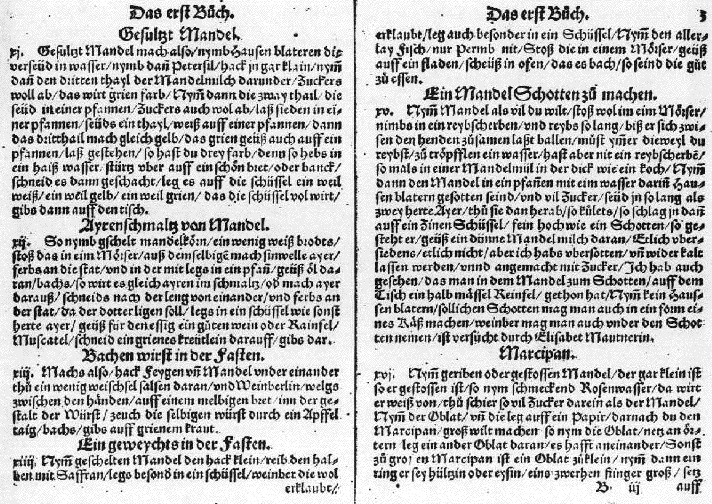 Das erst Bůch.
Gesultzt Mandel.
xj. Gesultzt Mandel mach also/nymb Hausen blateren die
verseüd in wasser/nymb dañ Petersil/hack jn gar klain/nymm
dañ den dritten thayl der Mandelmilch darunder/Zuckers
woll ab/das wirt grien farb/Nym̃ dann die zway thail/die
seüd in einer pfannen/Zuckers auch wol ab/laß sieden in ei-
ner pfannen/seüds ein thayl/weiß auff einer pfannen/dann
das dritthail mach gleich gelb/das grien geüß auch auff ein
pfannen/laß gestehen/so hast du drey farb/denn so hebs in
ein haiß wasser/stürtz vber auff ein schön biet/oder banck/
schneid es dann geschacht/leg es auff die schüssel ein weil
weiß/ein weil gelb/ein weil grien/das die schüssel vol wirt/
gibs dann auff den tisch.
Ayrenschmaltz von Mandel.
xij. So nymb gschelt mandelkörn/ein wenig weiß brodts/
stoß das in eim Mörser/auß demselbigē mach sinwelle ayer/
ferbs an die stat/vnd in der mit legs in ein pfañ/geüß öl da-
ran/bachs/so wirt es gleich ayren im schmaltz/ob mach ayer
darauß/schneids nach der leng von einander/vnd ferbs an
der stat/da der dotter ligen soll/legs in ein schüssel wie sonst
herte ayer/geüß für den essig ein gůten wein oder Rainfel/
Muscatel/schneid ein grienes kreütlein darauff/gibs dar.
Bachen wirst in der Fasten.
xiij. Machs also/hack Feygen vñ Mandel vnder einander
thů ein wenig weischsel salsen daran/vnd Weinberlin/welgs
zwischen den händen/auff einem melbigen bret/inn der ge-
stalt der Würst/zeuch die selbigen würst durch ein Apffel
taig/bachs/gibs auff grienem kraut.
Ein geweychts in der Fasten.
xiiij. Nym̃ geschelten Mandel den hack klein/reib den hal-
ben mit Saffran/legs besond in ein schüssel/weinber die wol
erklaubt/
Das erst Bůch. 3
erklaubt/leg auch besonder in ein Schüssel/Nym̃ den aller-
lay Fisch/nur Permb nit/Stoß die in einem Mörser/geüß
auff ein fladen/scheüß in ofen/das es bach/so seind die gůt
zů essen.
Ein Mandel Schotten zů machen.
xv. Nym̃ Mandel als vil du wilt/stoß wol im eim Mörser/
nimbs in ein reybscherben/vnd reybs so lang/biß er sich zwi-
sen den henden zůsamen laßt ballen/můst ymmer dieweyl du
reybst/zů tröpfflen ein wasser/hast aber nit ein reybscherbē/
so mals in einer Mandelmül in der dick wie ein koch/Nym̃
dann den Mandel in ein pfañen mit eim wasser dariñ Hau-
sen blatern gesotten seind/vnd vil Zucker/seüd jn so lang als
zwey herte Ayer/thů sie dan herab/so kůlets/so schlag jn dañ
auff ein Zinen Schüssel/fein hoch wie ein Schotten/so ge-
steht er/geüß ein dünne Mandel milch daran/Etlich vber-
siedens/etlich nicht/aber ich habs vbersotten/vñ wider kalt
lassen werden/vnnd angemacht mit Zucker/Ich hab auch
gesehen/das man in dem Mandel zum Schotten/auff dem
Tisch ein halb mässel Reinfel/gethon hat/Nym̃ kein Hau-
sen blatern/söllichen Schotten mag man auch in ein form ei-
nes Käß machen/weinber mag man auch vnder den Schot-
ten nemen/ist versůcht durch Elisabet Mautnerin.
Marcipan.
xvj. Nym̃ geriben oder gestossen Mandel/der gar klein ist
so er gestossen ist/so nym schmeckend Rosenwasser/da wirt
er weiß von/thů schier so vil Zucker darein als der Mandel/
Nym̃ der Oblat/vñ die leg auff ein Papir/darnach du den
Marcipan/groß wilt machen so nym die Oblat/netz an ör-
tern leg ein ander Oblat daran/es hafft aneinander/Sonst
zů grossen Marcipan ist ein Oblat zů klein/nym̃ dann ein
ring er sey hültzin oder eysin/eins zwerhen finger groß/setz
B iij auff